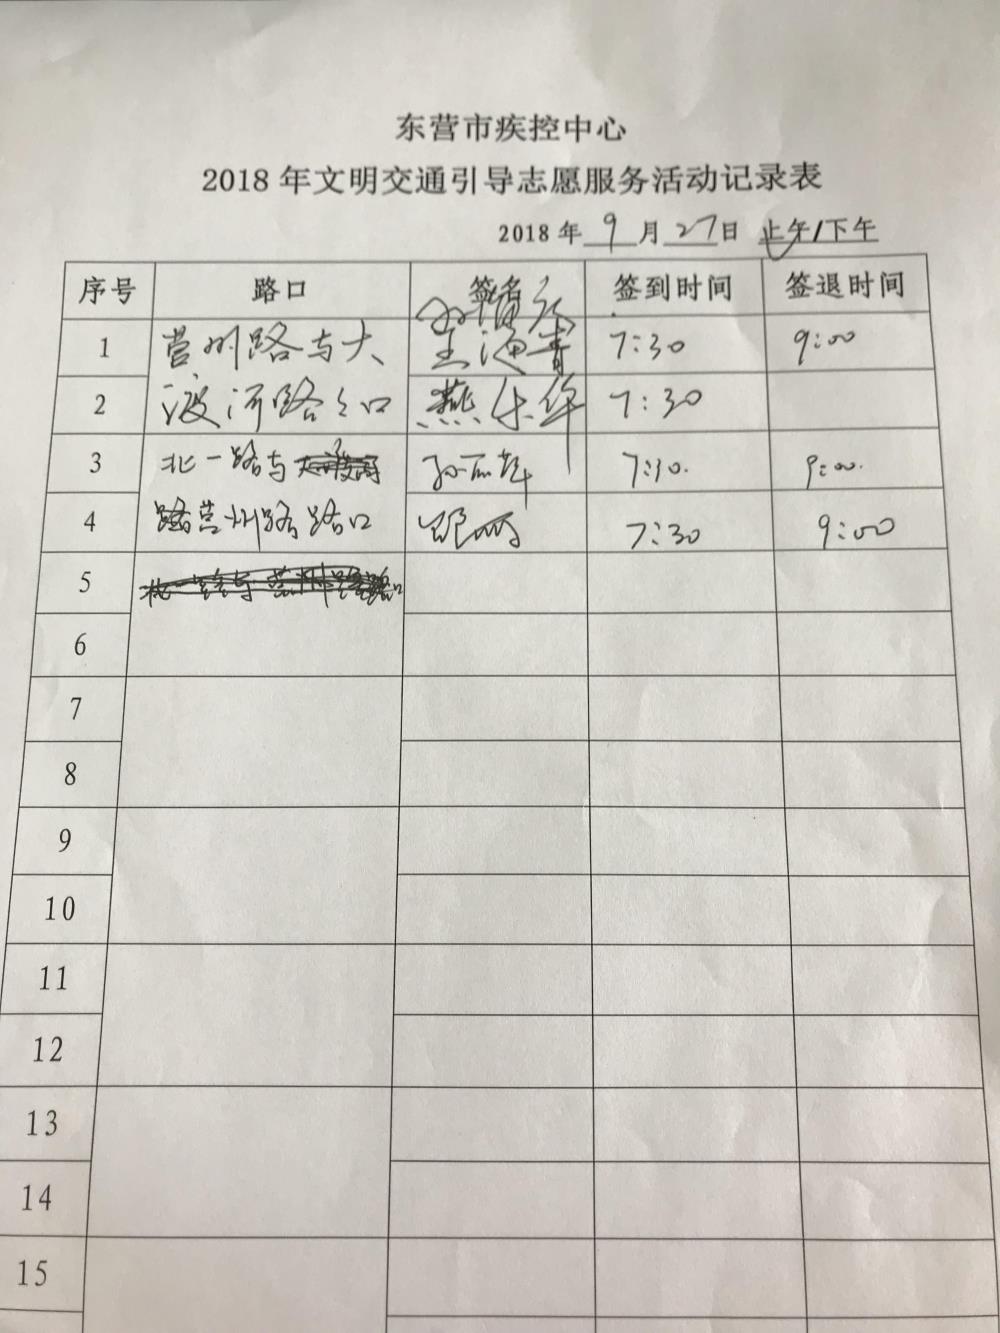 东营市疾控中心
2018 年文明交通引导志愿服务活动记录表
2018 年 9 月 27 日 上午/下午
序号 路口 签名 签到时间 签退时间
1 营州路与大 王海青 7:30 9:00
2 渡河路路口 燕乐华 7:30
3 北一路与 7:30. 9:00.
4 营州路路口 7:30 9:00
5
6
7
8
9
10
11
12
13
14
15